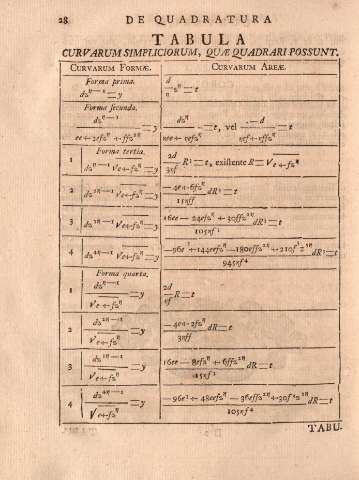 28 DE QUADRATURA
TABULA
CURVARUM SIMPLICIORUM, QUÆ QUADRARI POSSUNT.
CURVARUM FORMÆ. CURVARUM AREÆ.
Forma prima.
dz^{η−1} = y | d/η z^η = t
Forma secunda.
dz^{η−1}/(ee+2efz^η+ffz^{2η}) = y | dz^η/(ηee+ηefz^η) = t, vel −d/(ηef+ηffz^η) = t
Forma tertia.
1 | dz^{η−1} √e+fz^η = y | 2d/3ηf R³ = t, existente R = √e+fz^η
2 | dz^{2η−1} √e+fz^η = y | (−4e+6fz^η)/15ηff dR³ = t
3 | dz^{3η−1} √e+fz^η = y | (16ee−24efz^η+30ffz^{2η})/105ηf³ dR³ = t
4 | dz^{4η−1} √e+fz^η = y | (−96e³+144eefz^η−180effz^{2η}+210f³z^{3η})/945ηf⁴ dR³ = t
Forma quarta.
1 | dz^{η−1}/√e+fz^η = y | 2d/ηf R = t
2 | dz^{2η−1}/√e+fz^η = y | (−4e+2fz^η)/3ηff dR = t
3 | dz^{3η−1}/√e+fz^η = y | (16ee−8efz^η+6ffz^{2η})/15ηf³ dR = t
4 | dz^{4η−1}/√e+fz^η = y | (−96e³+48eefz^η−36effz^{2η}+30f³z^{3η})/105ηf⁴ dR = t
TABU.